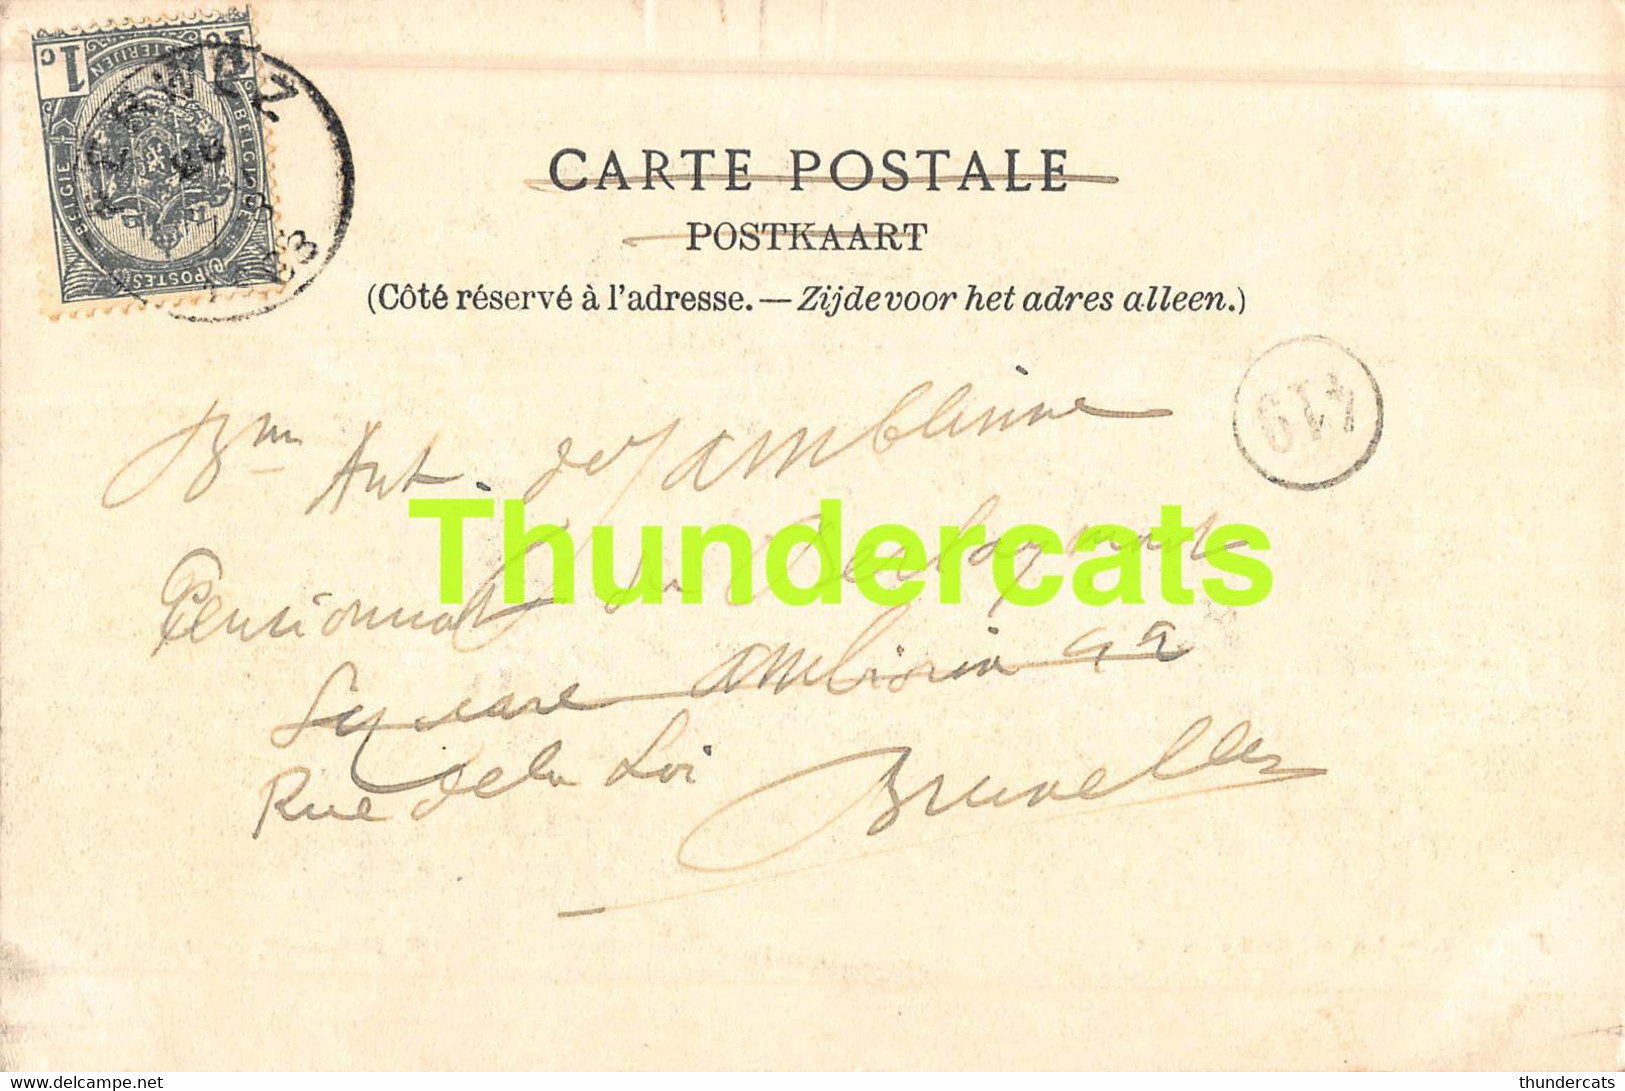 1 c
BELGIE
BELGIQUE
POSTES
POSTERIJEN
CARTE POSTALE
POSTKAART
(Côté réservé à l'adresse. — Zijde voor het adres alleen.)
419
Bnn Ant. de Jamblinne
Pensionnat du Berlaymont
Square Ambiorix 42
Rue de la Loi
Bruxelles
Thundercats
www.delcampe.net
thundercats